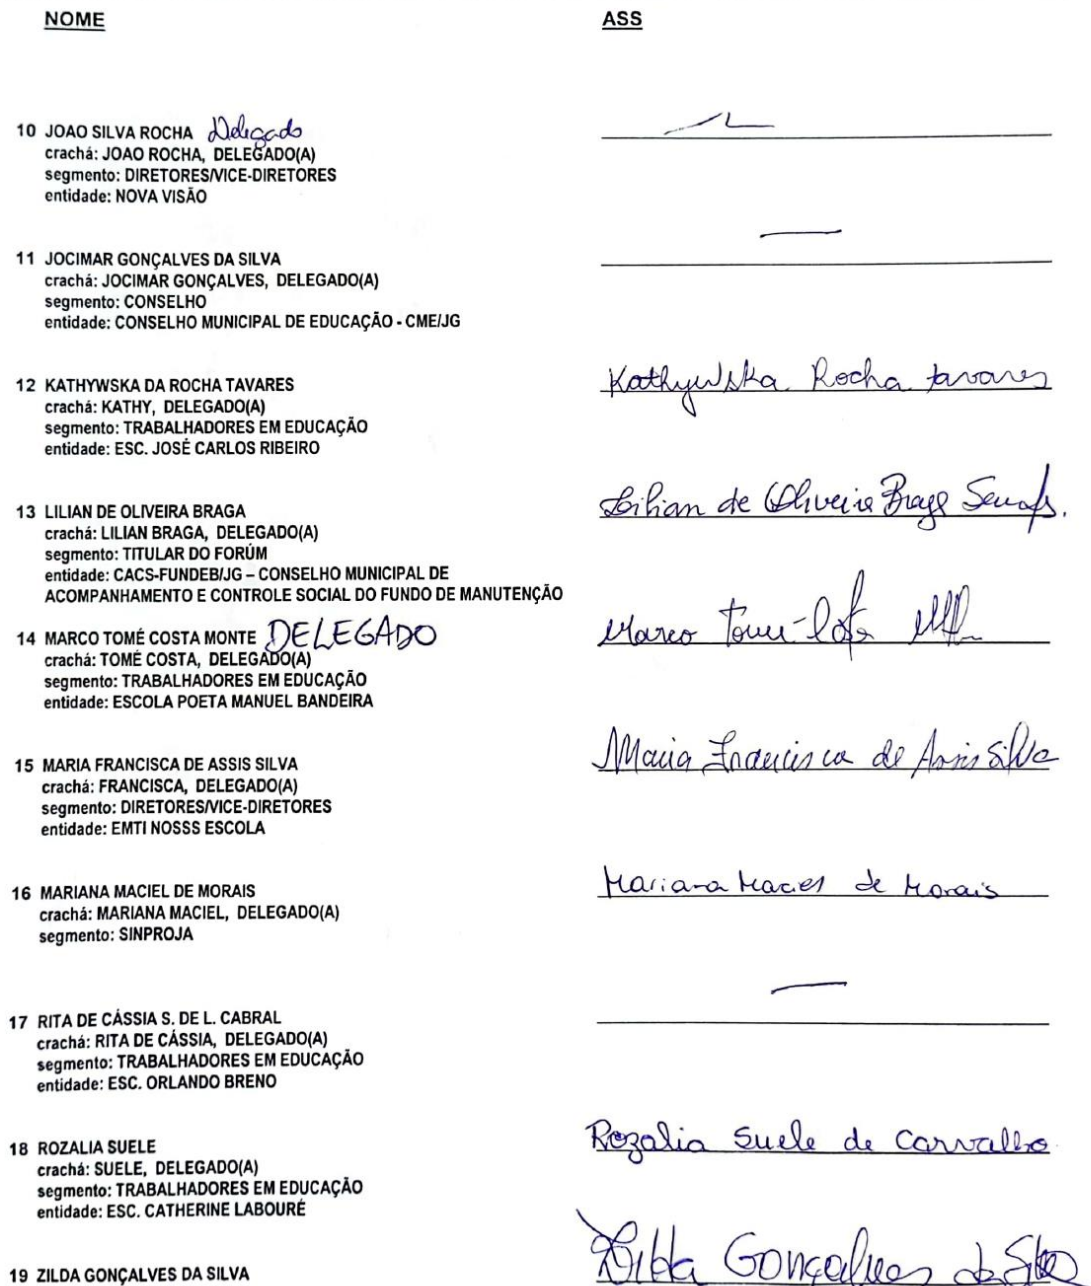 NOME ASS
10 JOAO SILVA ROCHA Delegado
crachá: JOAO ROCHA, DELEGADO(A)
segmento: DIRETORES/VICE-DIRETORES
entidade: NOVA VISÃO
11 JOCIMAR GONÇALVES DA SILVA
crachá: JOCIMAR GONÇALVES, DELEGADO(A)
segmento: CONSELHO
entidade: CONSELHO MUNICIPAL DE EDUCAÇÃO - CME/JG
12 KATHYWSKA DA ROCHA TAVARES Kathywska Rocha tavares
crachá: KATHY, DELEGADO(A)
segmento: TRABALHADORES EM EDUCAÇÃO
entidade: ESC. JOSÉ CARLOS RIBEIRO
13 LILIAN DE OLIVEIRA BRAGA Lilian de Oliveira Braga
crachá: LILIAN BRAGA, DELEGADO(A)
segmento: TITULAR DO FORÚM
entidade: CACS-FUNDEB/JG – CONSELHO MUNICIPAL DE
ACOMPANHAMENTO E CONTROLE SOCIAL DO FUNDO DE MANUTENÇÃO
14 MARCO TOMÉ COSTA MONTE DELEGADO Marco Tomé Costa
crachá: TOMÉ COSTA, DELEGADO(A)
segmento: TRABALHADORES EM EDUCAÇÃO
entidade: ESCOLA POETA MANUEL BANDEIRA
15 MARIA FRANCISCA DE ASSIS SILVA Maria Francisca de Assis Silva
crachá: FRANCISCA, DELEGADO(A)
segmento: DIRETORES/VICE-DIRETORES
entidade: EMTI NOSSS ESCOLA
16 MARIANA MACIEL DE MORAIS Mariana Maciel de Morais
crachá: MARIANA MACIEL, DELEGADO(A)
segmento: SINPROJA
17 RITA DE CÁSSIA S. DE L. CABRAL
crachá: RITA DE CÁSSIA, DELEGADO(A)
segmento: TRABALHADORES EM EDUCAÇÃO
entidade: ESC. ORLANDO BRENO
18 ROZALIA SUELE Rozalia Suele de Carvalho
crachá: SUELE, DELEGADO(A)
segmento: TRABALHADORES EM EDUCAÇÃO
entidade: ESC. CATHERINE LABOURÉ
19 ZILDA GONÇALVES DA SILVA Zilda Gonçalves da Silva